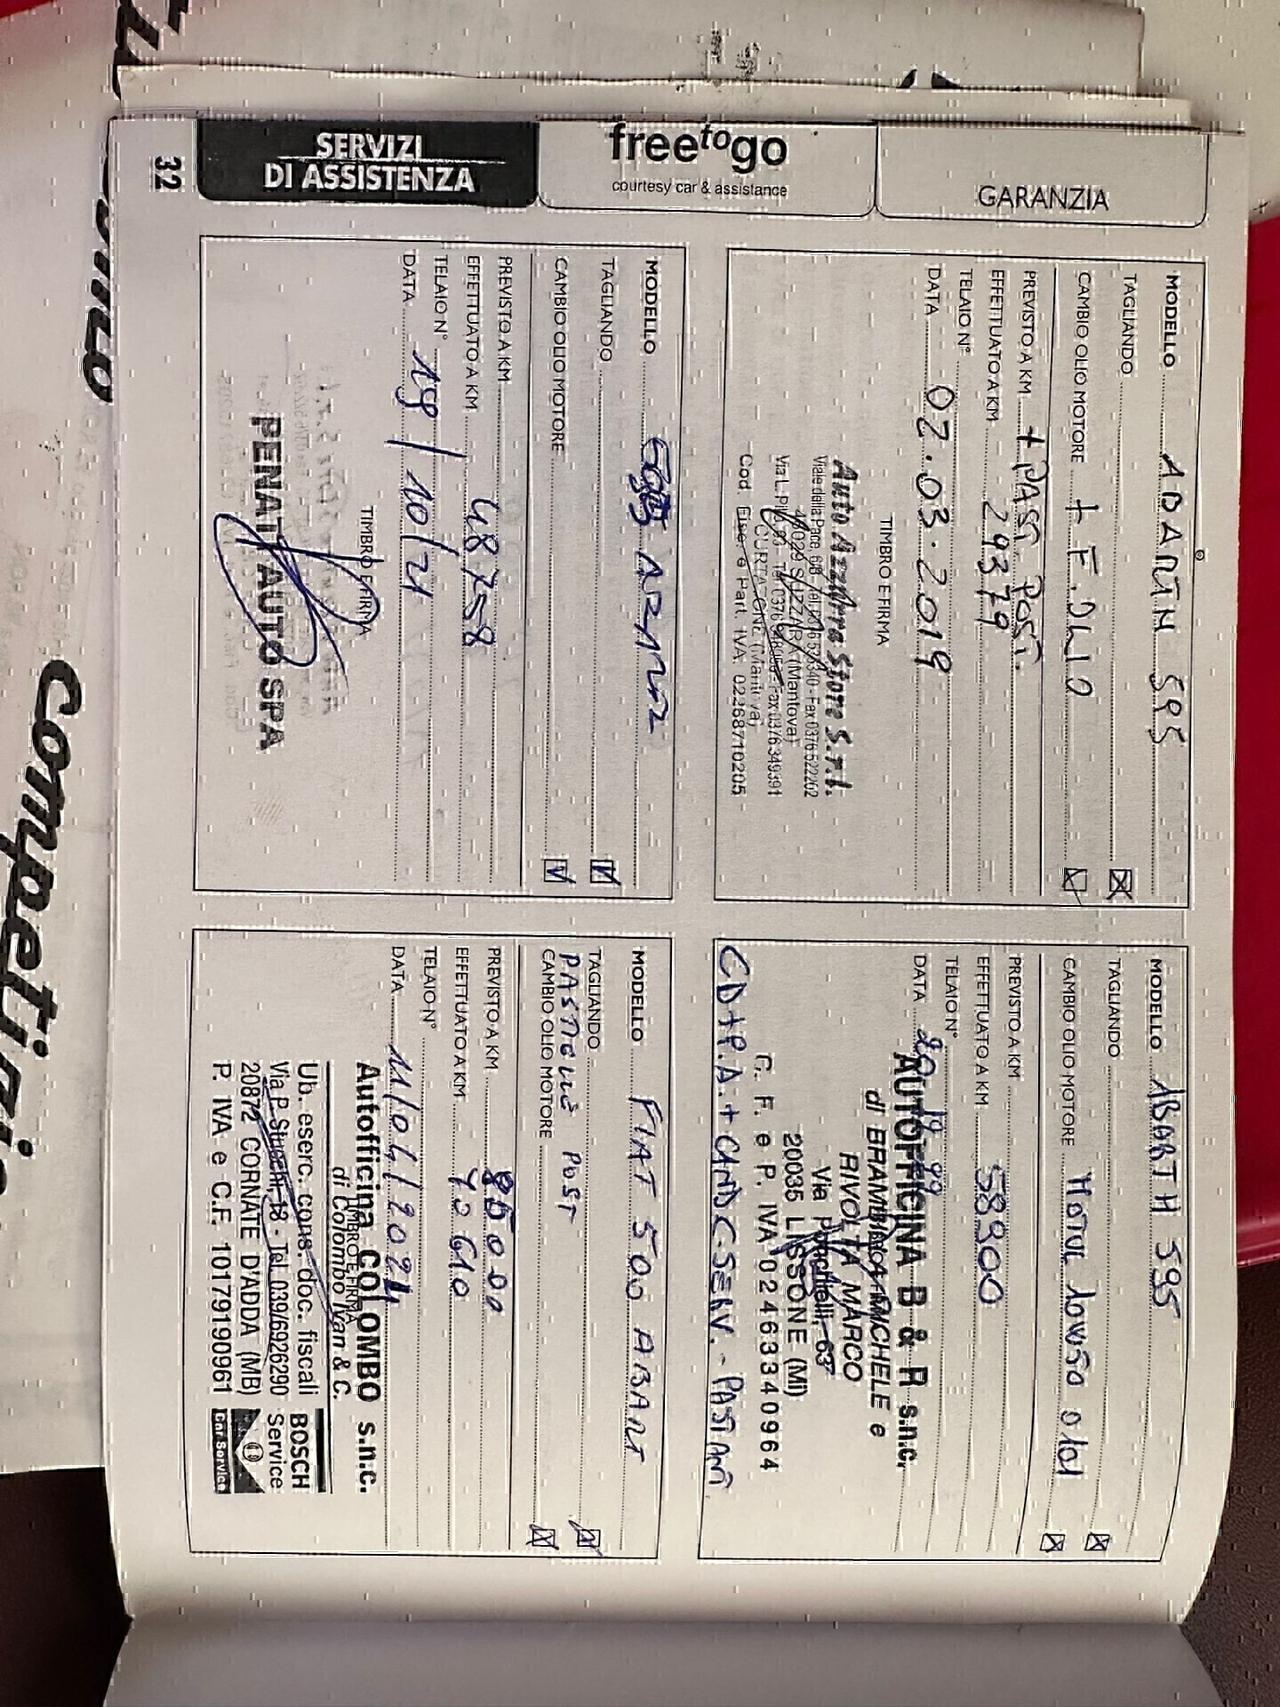 GARANZIA
freetogo
courtesy car & assistance
SERVIZI
DI ASSISTENZA
32
MODELLO 595
TAGLIANDO
CAMBIO OLIO MOTORE + F. OLIO
PREVISTO A KM + PAST. POST.
EFFETTUATO A KM 29379
TELAIO N°
DATA 02.03.2019
TIMBRO E FIRMA
Auto Azzurra Store S.r.l.
Viale della Pace, Fax 0376 522262
46029 SUZZARA (Mantova)
Via L. Fax 0376 349391
CURTATONE (Mantova)
Cod. Fisc. e Part. IVA 02268710205
MODELLO ABARTH 595
TAGLIANDO
CAMBIO OLIO MOTORE MOTUL 10W50
PREVISTO A KM
EFFETTUATO A KM 58900
TELAIO N°
DATA
AUTOFFICINA B & R s.n.c.
di BRAMBILLA MICHELE e
RIVOLTA MARCO
Via Ponchielli, 63
20035 LISSONE (MI)
C. F. e P. IVA 02463340964
MODELLO 595
TAGLIANDO
CAMBIO OLIO MOTORE
PREVISTO A KM
EFFETTUATO A KM 48758
TELAIO N°
DATA 19/10/21
TIMBRO E FIRMA
PENATI AUTO SPA
MODELLO FIAT 500 ABART
TAGLIANDO
PASTICLIE POST
CAMBIO OLIO MOTORE
PREVISTO A KM
EFFETTUATO A KM 72610
TELAIO N°
DATA 11/04/2024
TIMBRO E FIRMA
Autofficina COLOMBO s.n.c.
di Colombo Ivan & C.
Ub. eserc. cons. doc. fiscali
Via P. Stucchi, 18 - Tel. 039/6926290
20872 CORNATE D'ADDA (MB)
P. IVA e C.F. 10179190961
BOSCH
Service
Car Service
Competizione